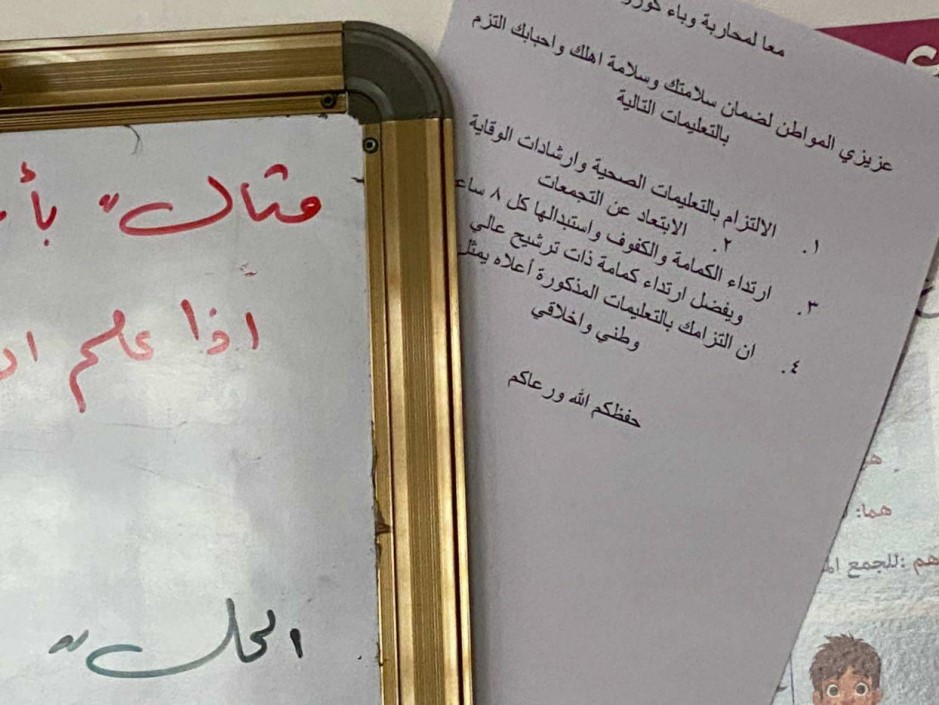 مثال"
اذا علم
الحل"
معا لمحاربة وباء
عزيزي المواطن لضمان سلامتك وسلامة اهلك واحبابك التزم
بالتعليمات التالية
١. الالتزام بالتعليمات الصحية وارشادات الوقاية
٢. الابتعاد عن التجمعات
٣. ارتداء الكمامة والكفوف واستبدالها كل ٨
ويفضل ارتداء كمامة ذات ترشيح عالي
٤. ان التزامك بالتعليمات المذكورة أعلاه يمثل
وطني واخلاقي
حفظكم الله ورعاكم
هما:
هم :للجمع